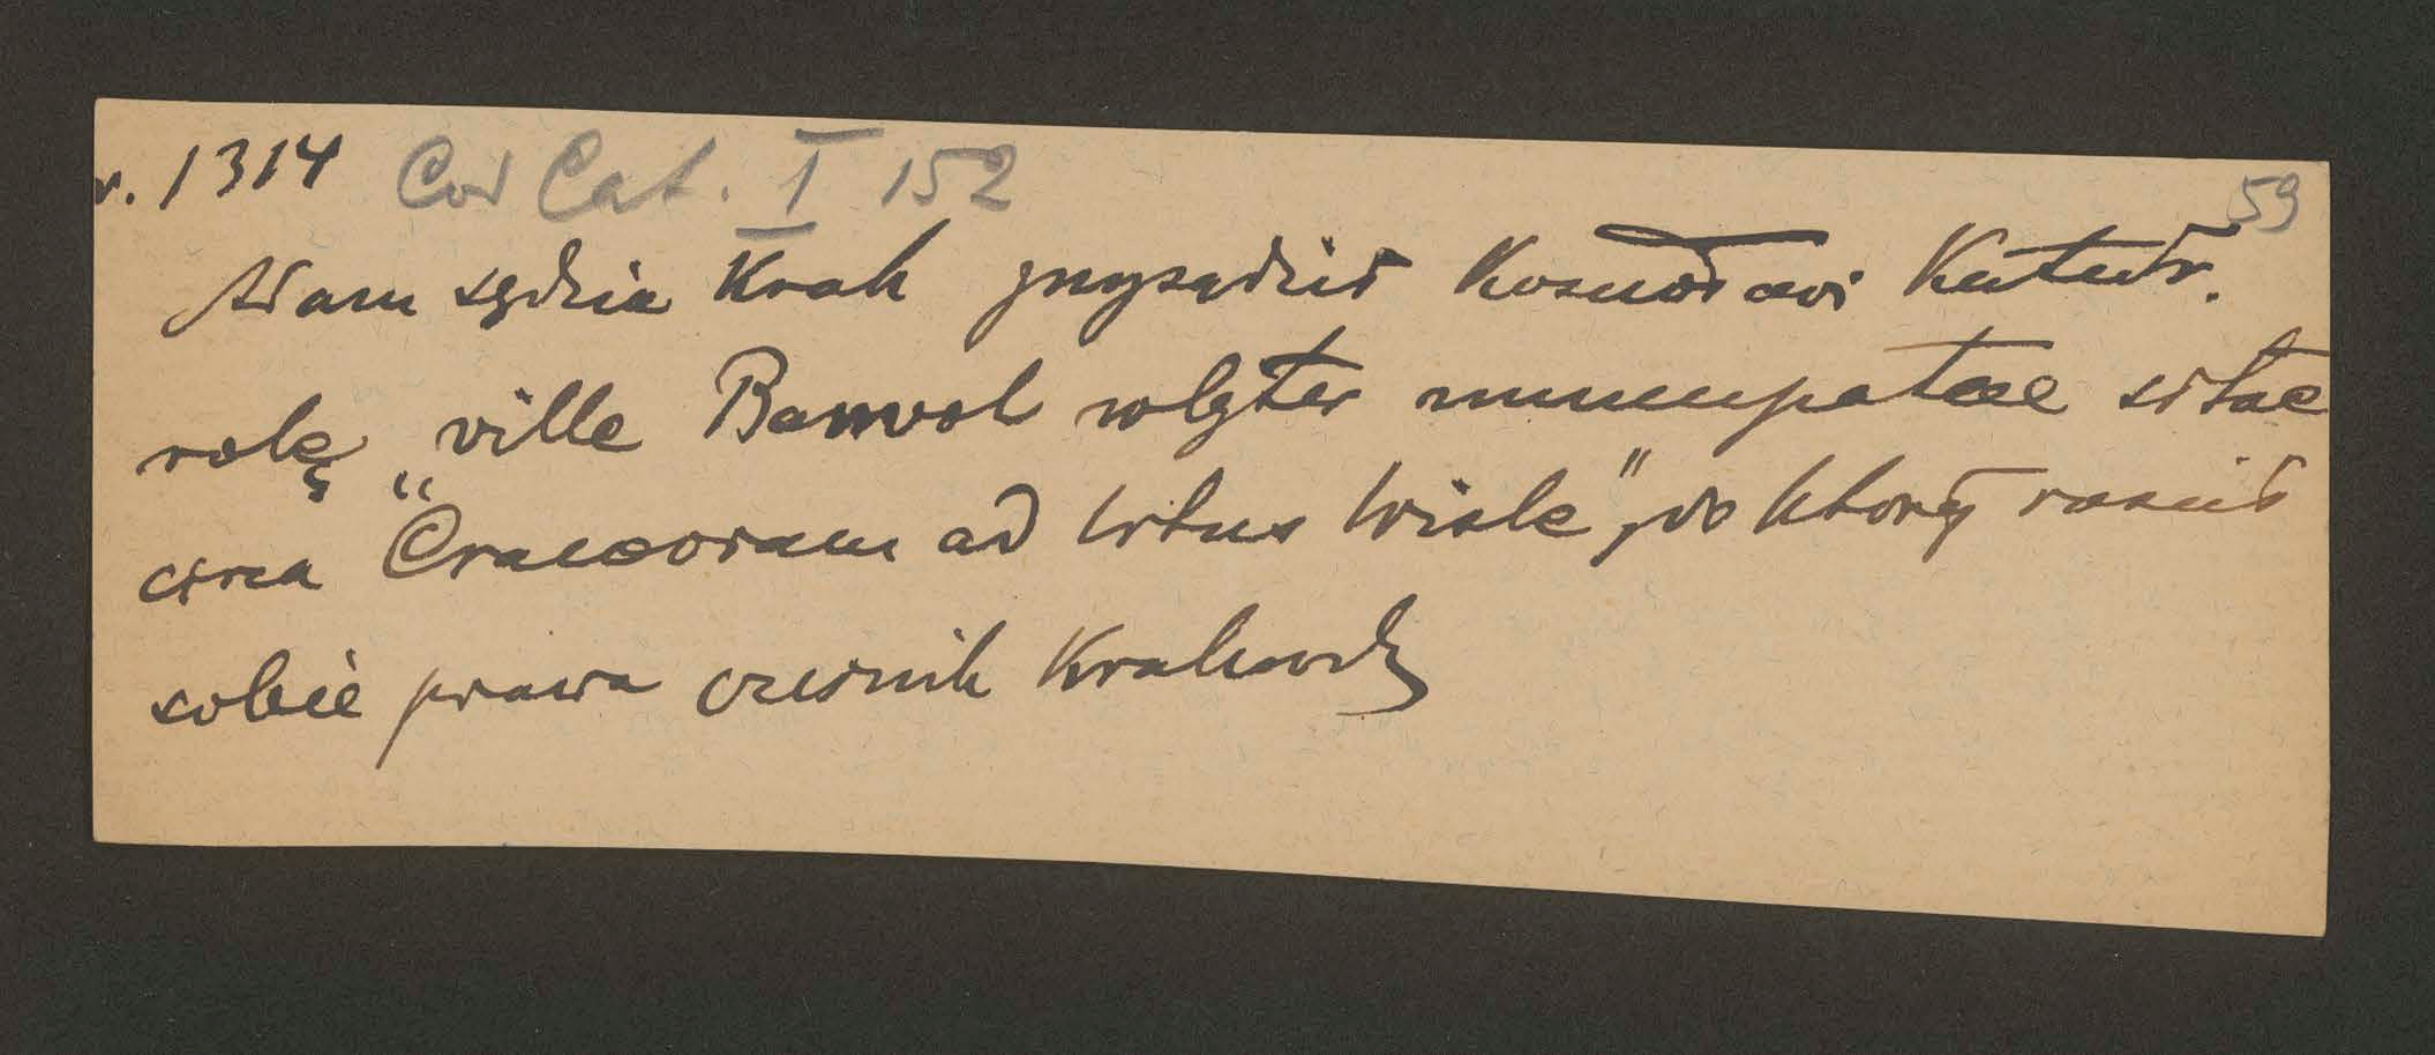 r. 1314 Cod Cat. I 152
59
Adam sędzia Krak przysądził Kosciołowi Katedr.
rolę „ville Banvol wlgter nuncupatae sitae
circa Cracoviam ad litus Wisle", do której rościł
sobie prawa cześnik Krakowsk